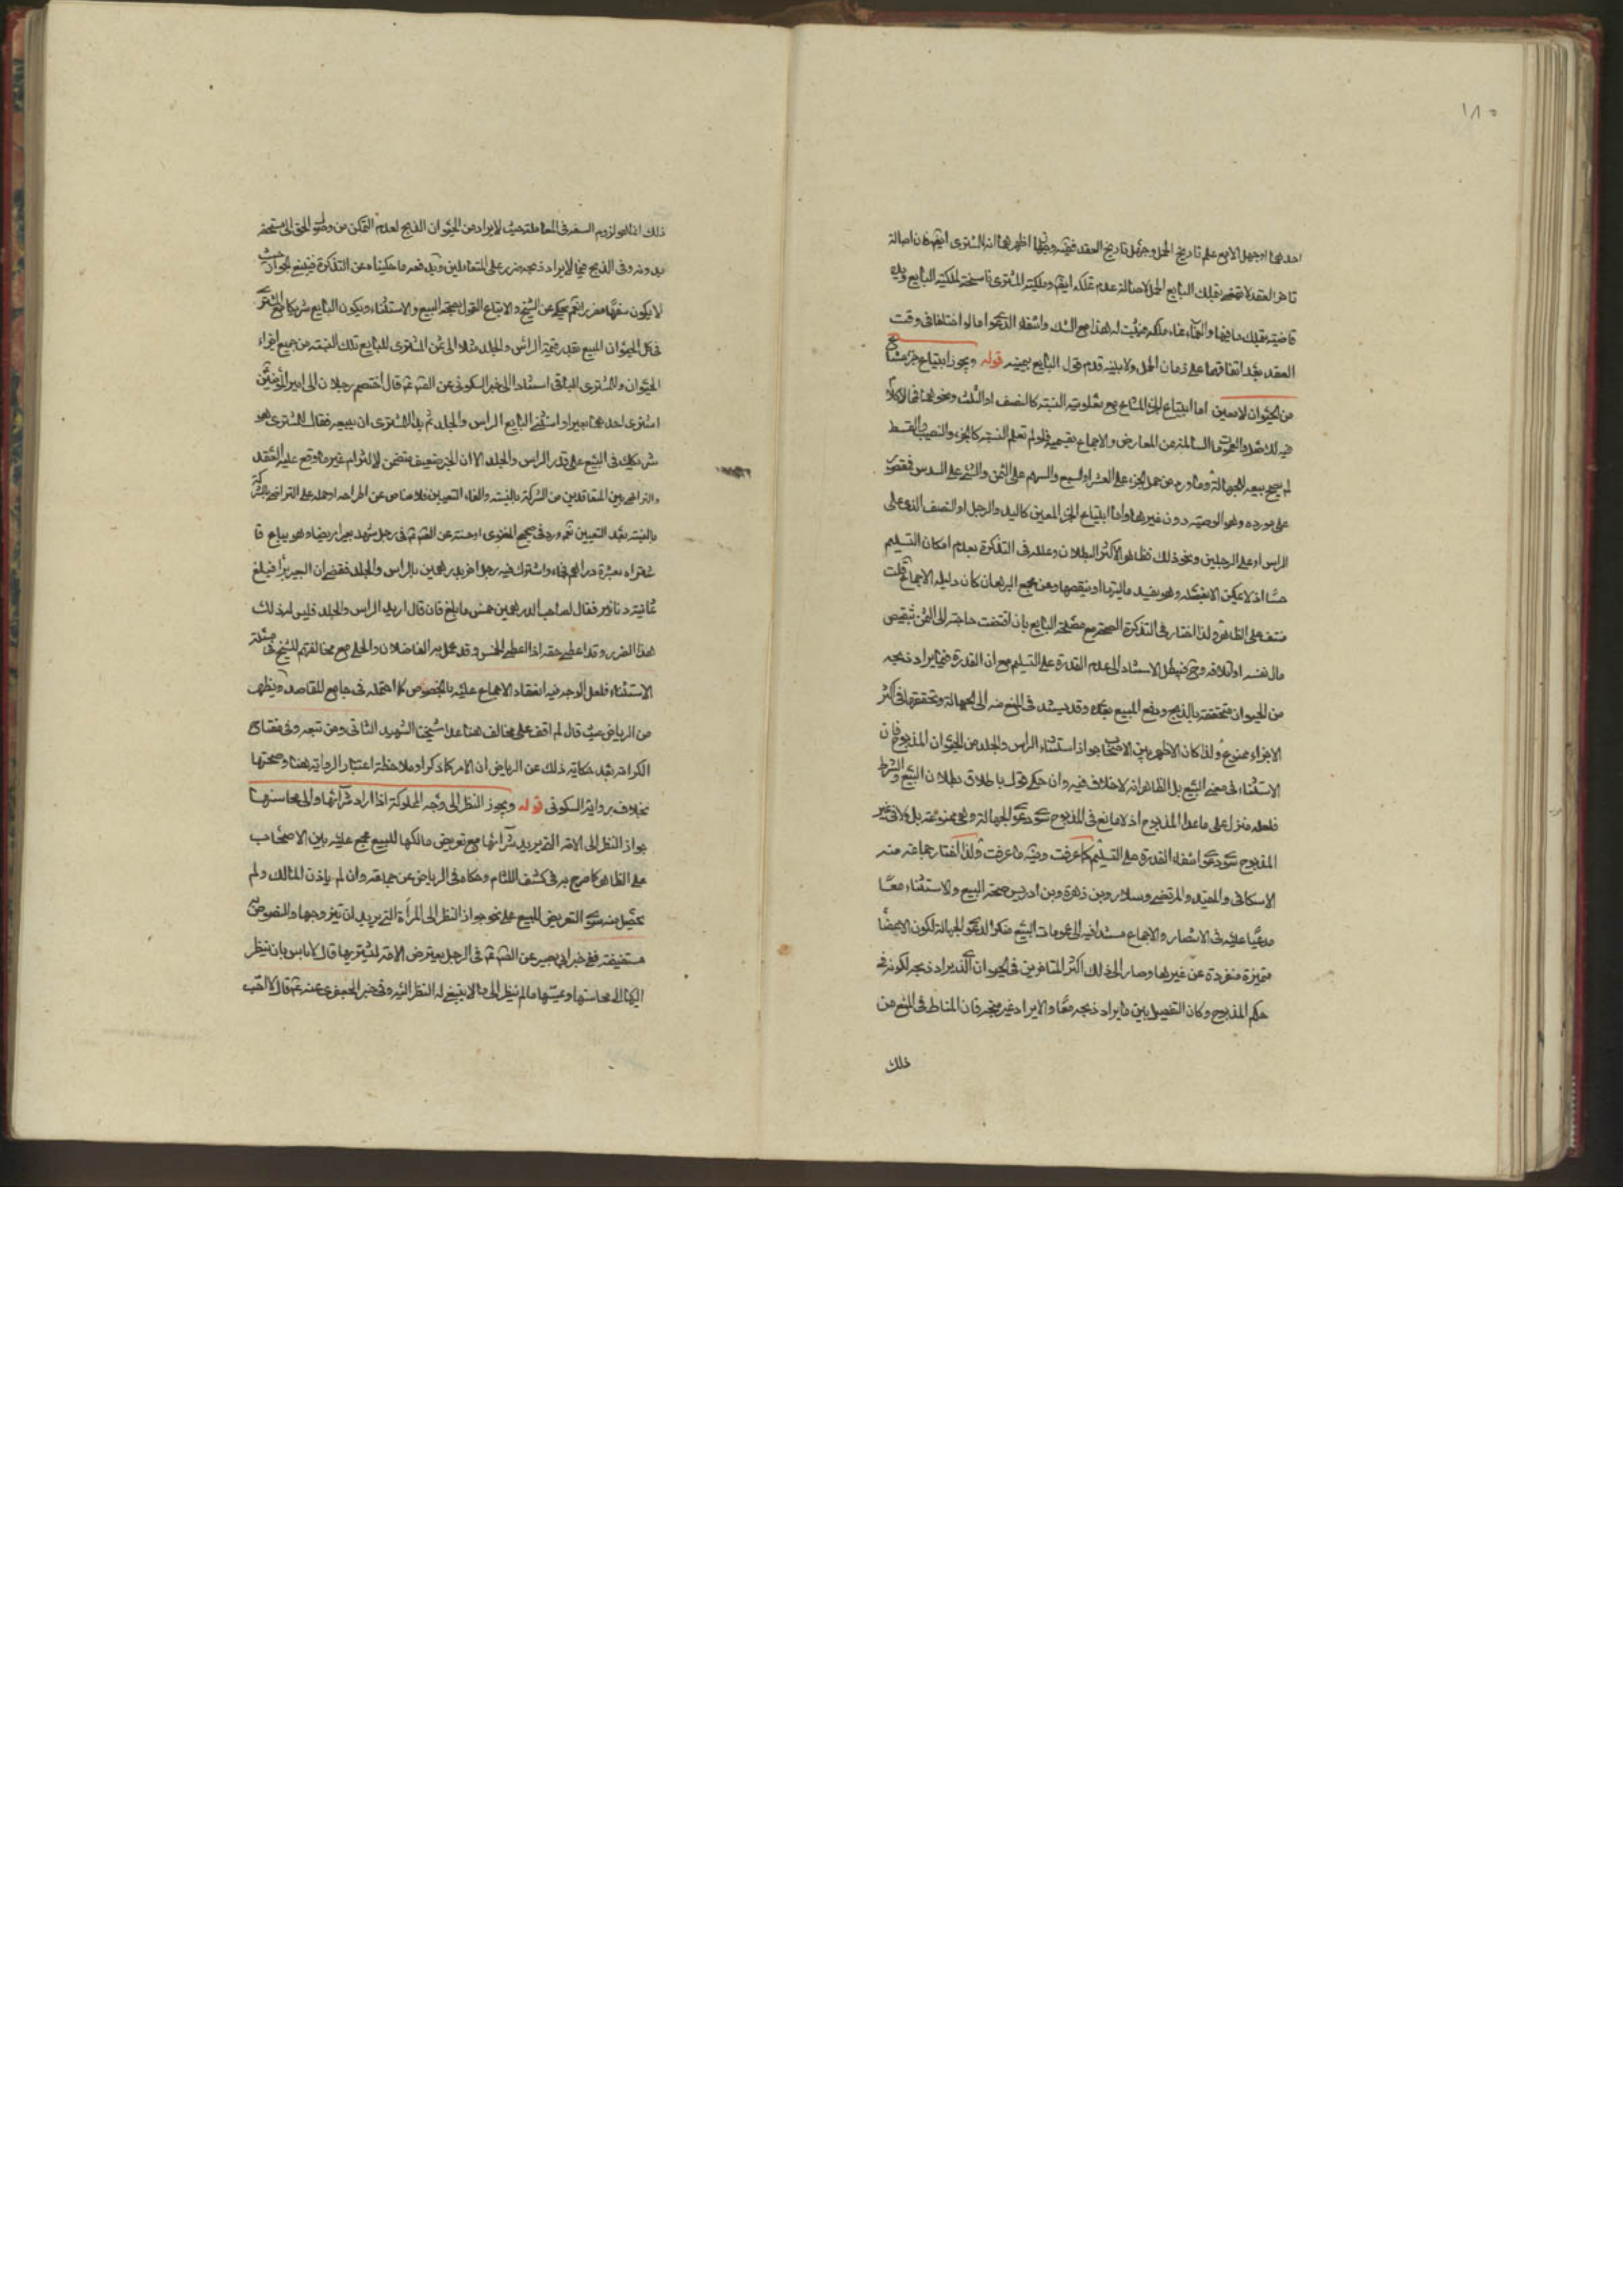 ١٨٥
احدهما او جهل الامع علم تاريخ الحمل وجهل تاريخ العقد ففيه وجهان اظهرهما انه للمشترى ايضا فان اصالة
تاخر العقد لا تقتضى بملك البايع الحمل لاصالة عدم تملكه ايضا وملكية المشترى ناسخة لملكية البايع ويده
قاضية بملك ما فيها والنماء نماء ملكه فيثبت له هذا مع الشك وانتفاء الدعوى اما لو اختلفا فى وقت
العقد بعد اتفاقهما على زمان الحمل ولا بينة قدم قول البايع بيمينه قوله ويجوز ابتياع جزء مشاع
من الحيوان لا معين اما ابتياع الجزء المشاع مع معلومية النسبة كالنصف او الثلث ونحوهما فى الاكلام
فيه لك ضله والعمومات السالمة عن المعارض والاجماع بقسميه فلو لم تعلم النسبة كالجزء والنصيب والقسط
لم يصح بيعه للجهالة وما ورد من حمل الجزء على العشر او السبع والسهم على الثمن والشئ على السدس فمقصور
على مورده وهو الوصية دون غيرها واما ابتياع الجزء المعين كاليد والرجل او النصف الذى على
الراس او على الرجلين ونحو ذلك فظاهر الاكثر البطلان وعلله فى التذكرة بعدم امكان التسليم
حسا اذ لا يمكن الا بفصله وهو يفيد ماليتها او ينقصها وعن مجمع البرهان كان دليله الاجماع قلت
منتف على الظاهر ولذا اختار فى التذكرة الصحة مع مصلحة البايع بان اقتضت حاجته الى الثمن تنقيص
مال نفسه او اتلافه وح فيبطل الاستناد الى عدم القدرة على التسليم مع ان القدرة فيما يراد ذبحه
من الحيوان متحققة بالذبح ودفع المبيع بعده وقد يستند فى المنع منه الى الجهالة وتحققها فى اكثر
الاجزاء ممنوع ولذا كان الاظهر بين الاصحاب جواز استثناء الراس والجلد من الحيوان المذبوح فان
الاستثناء فى معنى البيع بل الظاهر انه لا خلاف فيه وان حكى قول باطلاق بطلان البيع والشرط
فلعله منزل على ما عدا المذبوح اذ لا مانع فى المذبوح سوى دعوى الجهالة وهى ممنوعة بل لا فى غير
المذبوح سوى دعوى انتفاء القدرة على التسليم كما عرفت وفيه ما عرفت ولذا اختار جماعة منه
الاسكافى والمفيد والمرتضى وسلار وبن زهرة وبن ادريس صحة البيع والاستثناء معا
مدعيا عليه فى الانتصار والاجماع مستندا فيه الى عمومات البيع منكرا لدعوى الجهالة لكون الابعضا
متميزة منفردة عن غيرها وصار الى ذلك اكثر المتاخرين فى الحيوان الذى يراد ذبحه لكونه فى
حكم المذبوح وكان التفصيل بين ما يراد ذبحه معا ولا يراد غير متجه فان المناط فى المنع من
ذلك
ذلك انما هو لزوم السفه فى المعاملة حيث لا يراد من الحيوان الذبح لعدم التمكن من وصول الحق الى مستحقه
بدونه وفى الذبح فيما لا يراد ذبحه ضرر على المتعاملين ويدفعه ما حكيناه عن التذكرة فيتبع الجواز حيث
لا يكون سفها مضرا نعم يحكى عن الشيخ والاتباع القول بصحة البيع والاستثناء ويكون البايع شريكا مع المشترى
فى كل الحيوان المبيع بقدر قيمة الراس والجلد مثلا الى ثمن المشترى للبايع تلك النسبة من جميع اجزاء
الحيوان وللمشترى الباقى استنادا الى خبر السكونى عن الصادق ع قال اختصم رجلان الى امير المؤمنين
اشترى احدهما بعيرا واستثنى البايع الراس والجلد ثم بدا للمشترى ان يبيعه فقال للمشترى هو
شريكك فى البيع على قدر الراس والجلد الا ان الخبر ضعيف متضمن لالتزام غير ما وقع عليه العقد
والتراضى بين المتعاقدين من الشركة بالنسبة والغاء التعيين فلا مناص عن اطراحه او حمله على التراضى بالشركة
بالنسبة بعد التعيين نعم ورد فى صحيح الغنوى او حسنته عن الصادق ع فى رجل شهد بعيرا مريضا وهو يباع فا
شتراه بعشرة دراهم فجاء واشترك فيه رجل اخر بدرهمين بالراس والجلد فقضى ان البعير برأ فبلغ
ثمانية دنانير فقال لصاحب الدرهمين خمس ما بلغ فان قال اريد الراس والجلد فليس له ذلك
هذا الضرر وقد اعطى حقه اذا اعطى الخمس وقد عمل به الفاضلان والحلى مع مخالفتهم للشيخ فى مسئلة
الاستثناء فلعل الوجه فيه انعقاد الاجماع عليه بالخصوص كما احتمله فى جامع المقاصد ويظهر
من الرياض حيث قال لم اقف على مخالف هنا عدا شيخنا الشهيد الثانى ومن تبعه وفى مفتاح
الكرامة بعد حكاية ذلك عن الرياض ان الامر كما ذكر او ملاحظة اعتبار الرواية هنا وصحتها
بخلاف رواية السكونى قوله ويجوز النظر الى وجه المملوكة اذا اراد شرائها والى محاسنها
جواز النظر الى الامة التى يريد شرائها مع تعريض مالكها للبيع مجمع عليه بين الاصحاب
على الظاهر كما صرح به فى كشف اللثام وحكاه فى الرياض عن جماعة وان لم ياذن المالك ولم
يحصل منه سوى التعريض للبيع على نحو جواز النظر الى المرأة التى يريد ان يتزوجها والنصوص
مستفيضة ففى خبر ابى بصير عن الصادق ع فى الرجل يعترض الامة ليشتريها قال لا باس بان ينظر
اليها الى محاسنها ويمسها ما لم ينظر الى ما لا ينبغى له النظر اليه وفى خبر الجعفرى عنه ع قال لا احب